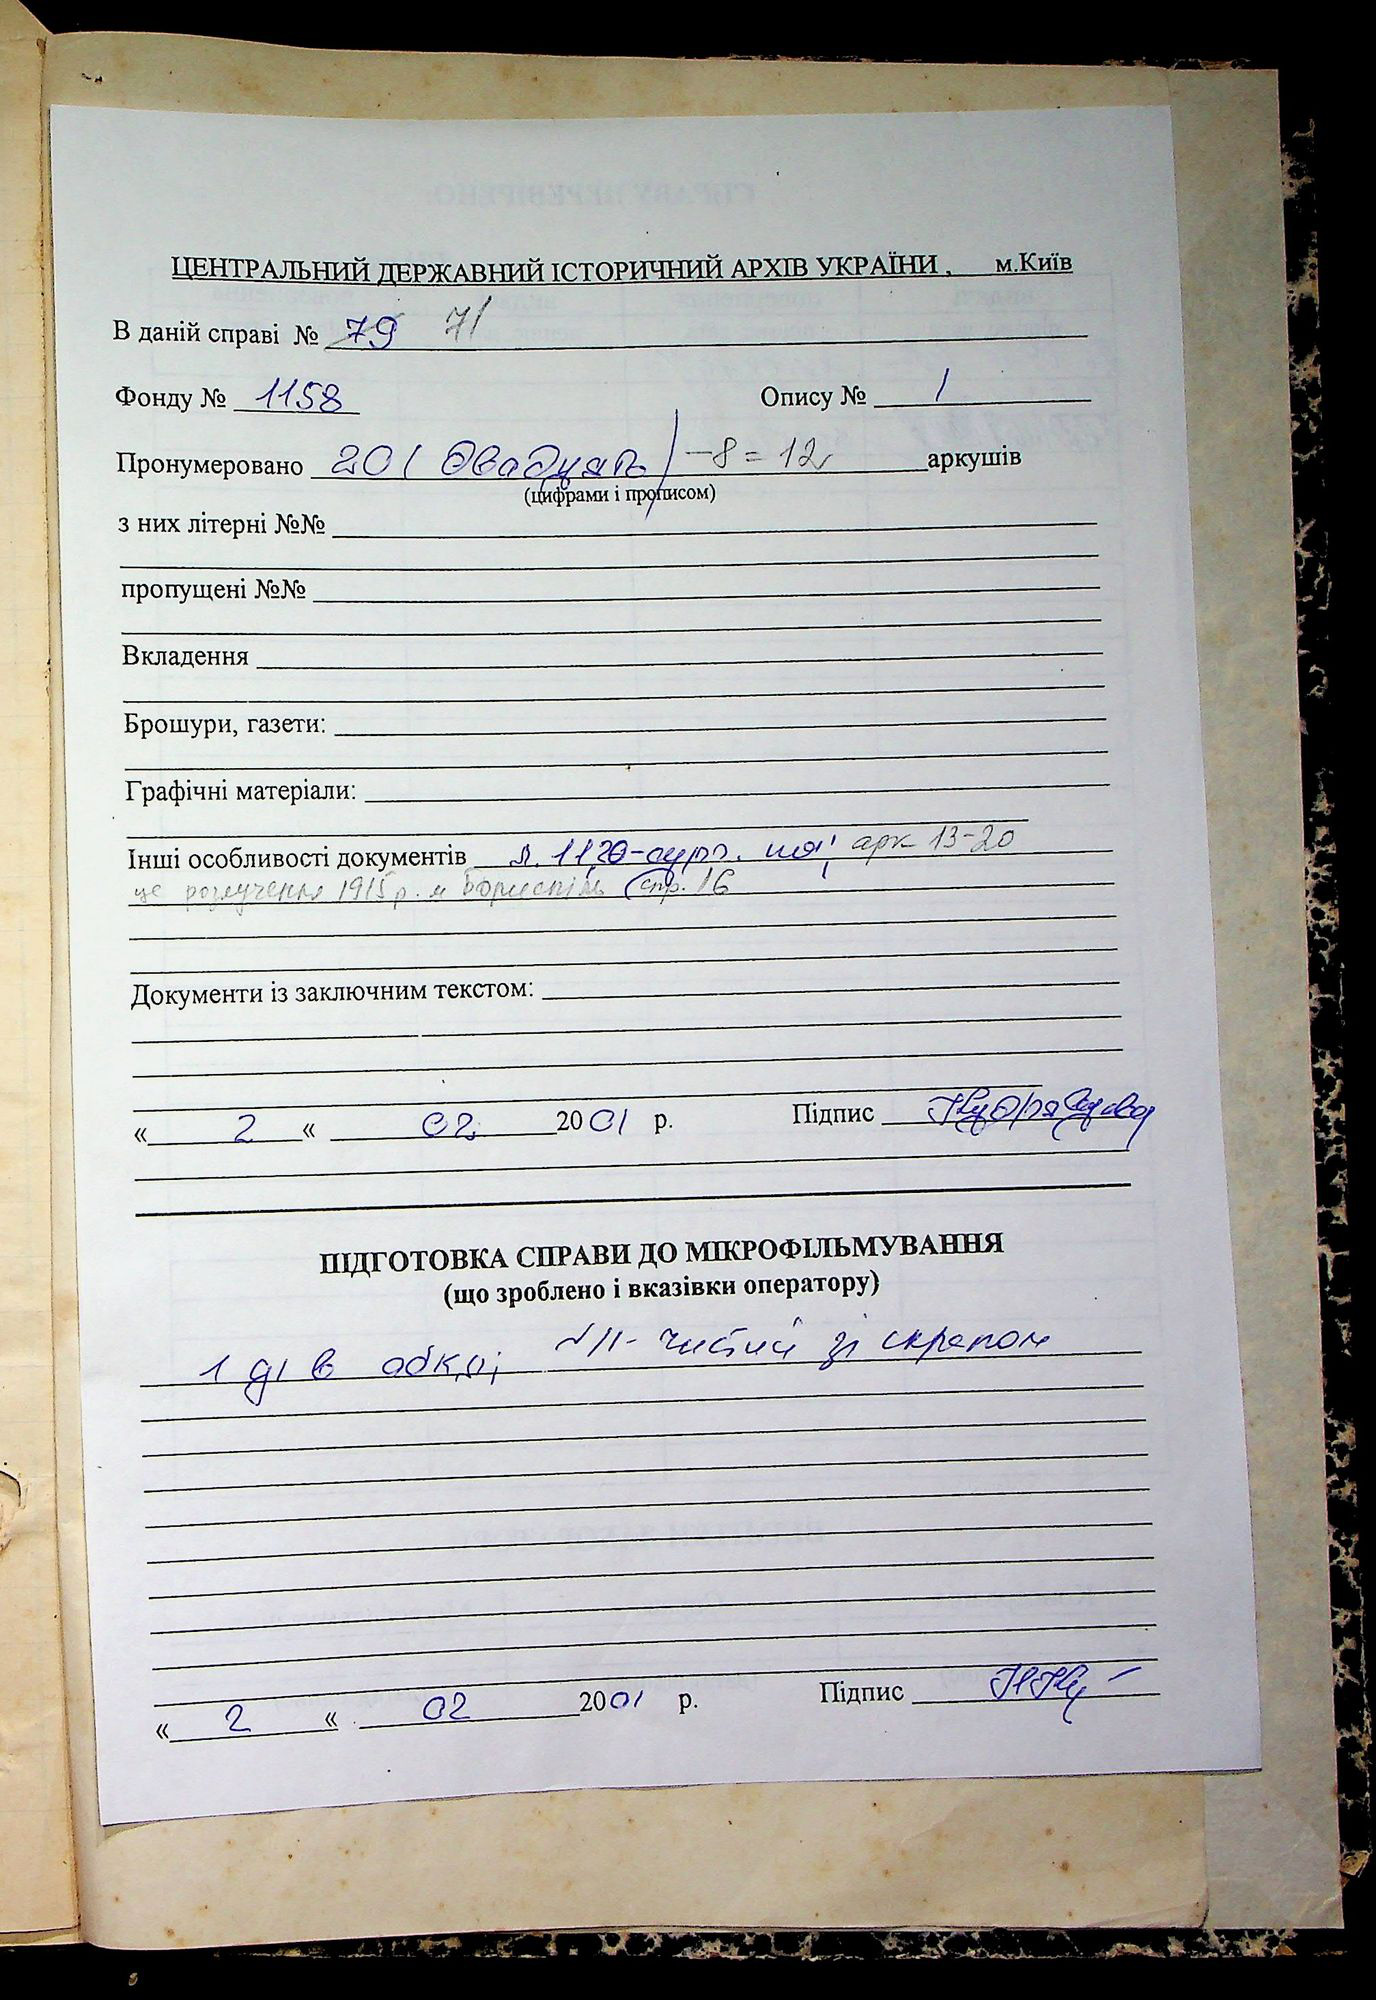 ЦЕНТРАЛЬНИЙ ДЕРЖАВНИЙ ІСТОРИЧНИЙ АРХІВ УКРАЇНИ , м.Київ
В даній справі № 79 71
Фонду № 1158 Опису № 1
Пронумеровано 20 (двадцять) -8 = 12 аркушів
(цифрами і прописом)
з них літерні №№
пропущені №№
Вкладення
Брошури, газети:
Графічні матеріали:
Інші особливості документів арк 13-20
це розлучення 1915 р. м Бориспіль стр. 16
Документи із заключним текстом:
« 2 « 02 2001 р. Підпис
ПІДГОТОВКА СПРАВИ ДО МІКРОФІЛЬМУВАННЯ
(що зроблено і вказівки оператору)
чистий зі скрепом
« 2 « 02 2001 р. Підпис